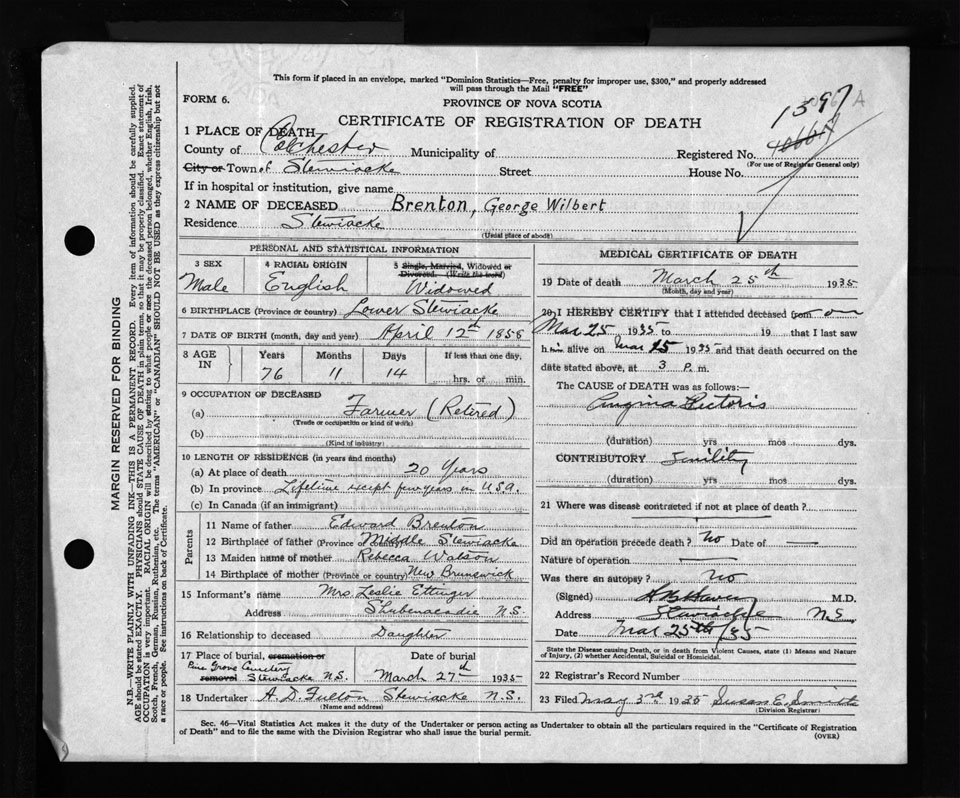 This form if placed in an envelope, marked "Dominion Statistics—Free, penalty for improper use, $300," and properly addressed
will pass through the Mail "FREE"
FORM 6.
PROVINCE OF NOVA SCOTIA
1597 A
CERTIFICATE OF REGISTRATION OF DEATH
1 PLACE OF DEATH
County of Colchester Municipality of Registered No.
(For use of Registrar General only)
City or Town of Stewiacke Street House No.
If in hospital or institution, give name
2 NAME OF DECEASED Brenton, George Wilbert
Residence Stewiacke
(Usual place of abode)
PERSONAL AND STATISTICAL INFORMATION
3 SEX 4 RACIAL ORIGIN 5 Single, Married, Widowed or
Divorced. (Write the word)
Male English Widowed
6 BIRTHPLACE (Province or country) Lower Stewiacke
7 DATE OF BIRTH (month, day and year) April 12th 1858
8 AGE IN Years Months Days If less than one day,
76 11 14 hrs. or min.
9 OCCUPATION OF DECEASED
(a) Farmer (Retired)
(Trade or occupation or kind of work)
(b)
(Kind of industry)
10 LENGTH OF RESIDENCE (in years and months)
(a) At place of death 20 Years
(b) In province Lifetime except few years in U.S.A.
(c) In Canada (if an immigrant)
Parents
11 Name of father Edward Brenton
12 Birthplace of father (Province or country) Middle Stewiacke
13 Maiden name of mother Rebecca Watson
14 Birthplace of mother (Province or country) New Brunswick
15 Informant's name Mrs. Leslie Ettinger
Address Shubenacadie N.S.
16 Relationship to deceased Daughter
17 Place of burial, cremation or Date of burial
removal Pine Grove Cemetery
Stewiacke N.S. March 27th 1935
18 Undertaker A. D. Fulton Stewiacke N.S.
(Name and address)
MEDICAL CERTIFICATE OF DEATH
19 Date of death March 25th 1935
(Month, day and year)
20 I HEREBY CERTIFY that I attended deceased from on
Mar 25 1935 to 19 that I last saw
him alive on Mar 25 1935 and that death occurred on the
date stated above, at 3 P. m.
The CAUSE OF DEATH was as follows:—
Angina Pectoris
(duration) yrs mos dys.
CONTRIBUTORY Senility
(duration) yrs mos dys.
21 Where was disease contracted if not at place of death?
Did an operation precede death? No Date of —
Nature of operation —
Was there an autopsy? no
(Signed) M.D.
Address Stewiacke N.S
Date Mar 25th/35
State the Disease causing Death, or in death from Violent Causes, state (1) Means and Nature
of Injury, (2) whether Accidental, Suicidal or Homicidal.
22 Registrar's Record Number
23 Filed May 3rd 1935 Susan E. Smith
(Division Registrar)
Sec. 46—Vital Statistics Act makes it the duty of the Undertaker or person acting as Undertaker to obtain all the particulars required in the "Certificate of Registration
of Death" and to file the same with the Division Registrar who shall issue the burial permit.
(OVER)
MARGIN RESERVED FOR BINDING
N.B.—WRITE PLAINLY WITH UNFADING INK—THIS IS A PERMANENT RECORD. Every item of information should be carefully supplied.
AGE should be stated EXACTLY. PHYSICIANS should STATE CAUSE OF DEATH in plain terms, so that it may be properly classified. Exact statement of
OCCUPATION is very important. RACIAL ORIGIN will be described by stating to what people or race the deceased person belonged, whether English, Irish,
Scotch, French, German, Russian, Ruthenian, etc. The terms "AMERICAN" or "CANADIAN" SHOULD NOT BE USED as they express citizenship but not
a race or people. See instructions on back of Certificate.